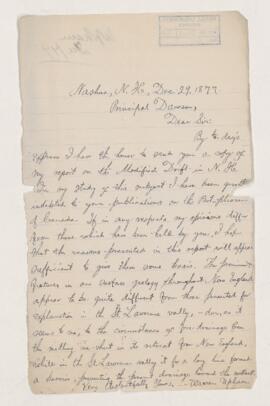 Nashua, N.H., Dec 29, 1877
Principal Dawson,
Dear Sir:
By to-day's
Express I have the honor to send you a copy of
my report on the Modified Drift in N. H.
In my study of this subject I have been greatly
indebted to your publications on the Post-pliocene
of Canada. If in any respects my opinions differ
from those which have been held by you, I hope
that the reasons presented in this report will appear
sufficient to give them some basis. The prominent
features in our surface geology throughout New England
appear to be quite different from those presented for
explanation in the St Lawrence valley, due, as it
seems to me, to the circumstance of free drainage from
the melting ice-sheet in its retreat from New England,
while in the St. Lawrence valley it for a long time formed
a barrier, preventing the present drainage toward the
Very Respectfully Yours, Warren Upham